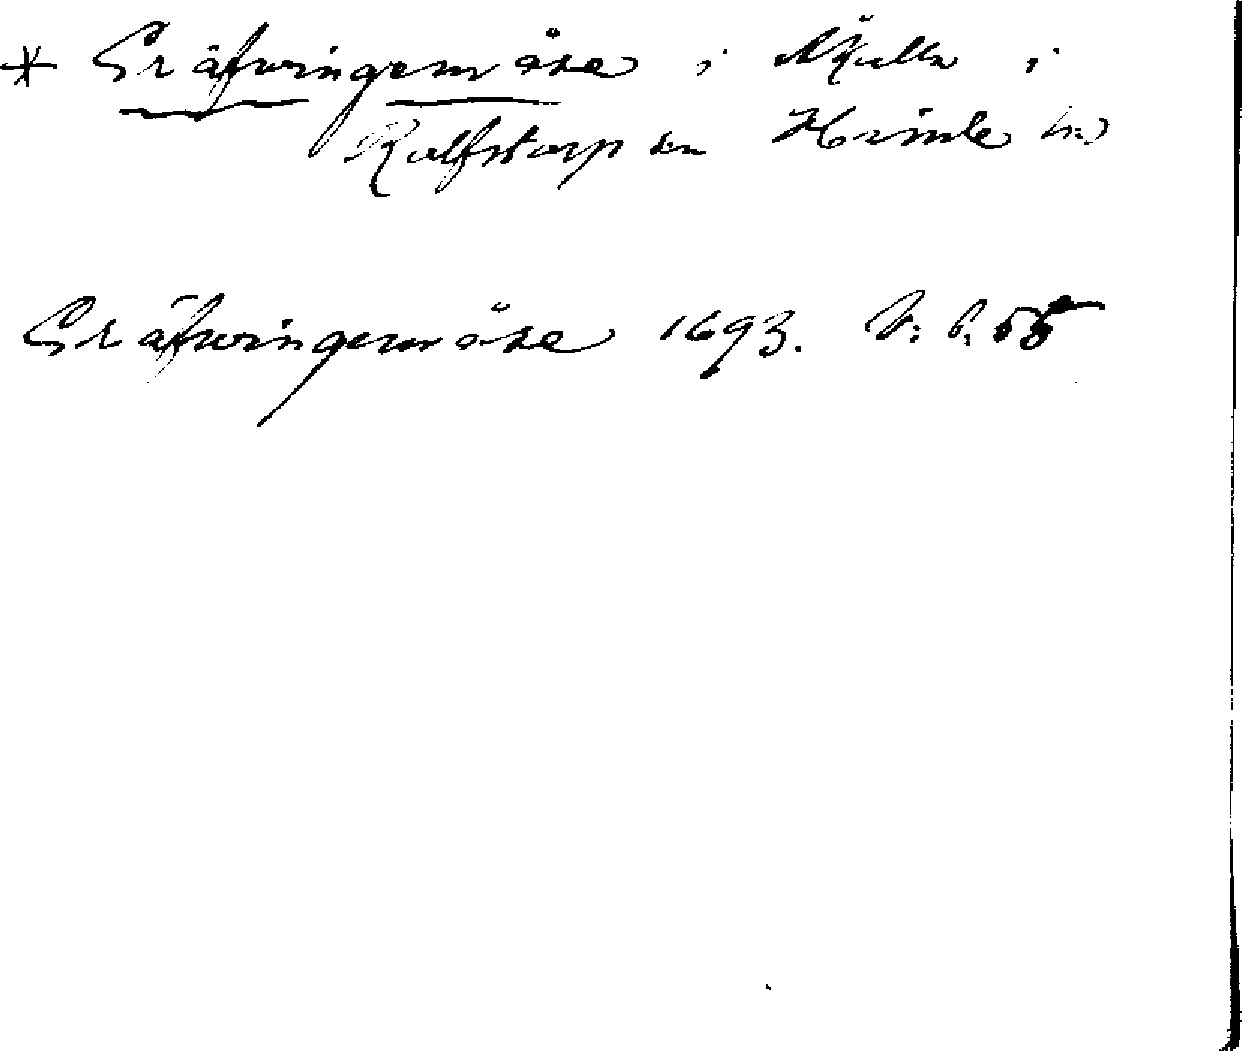 * Gräfwingemåse i Skälle i
Rolfstorp sn Himle hd
Gräfwingemåse 1693. V: 6. 55